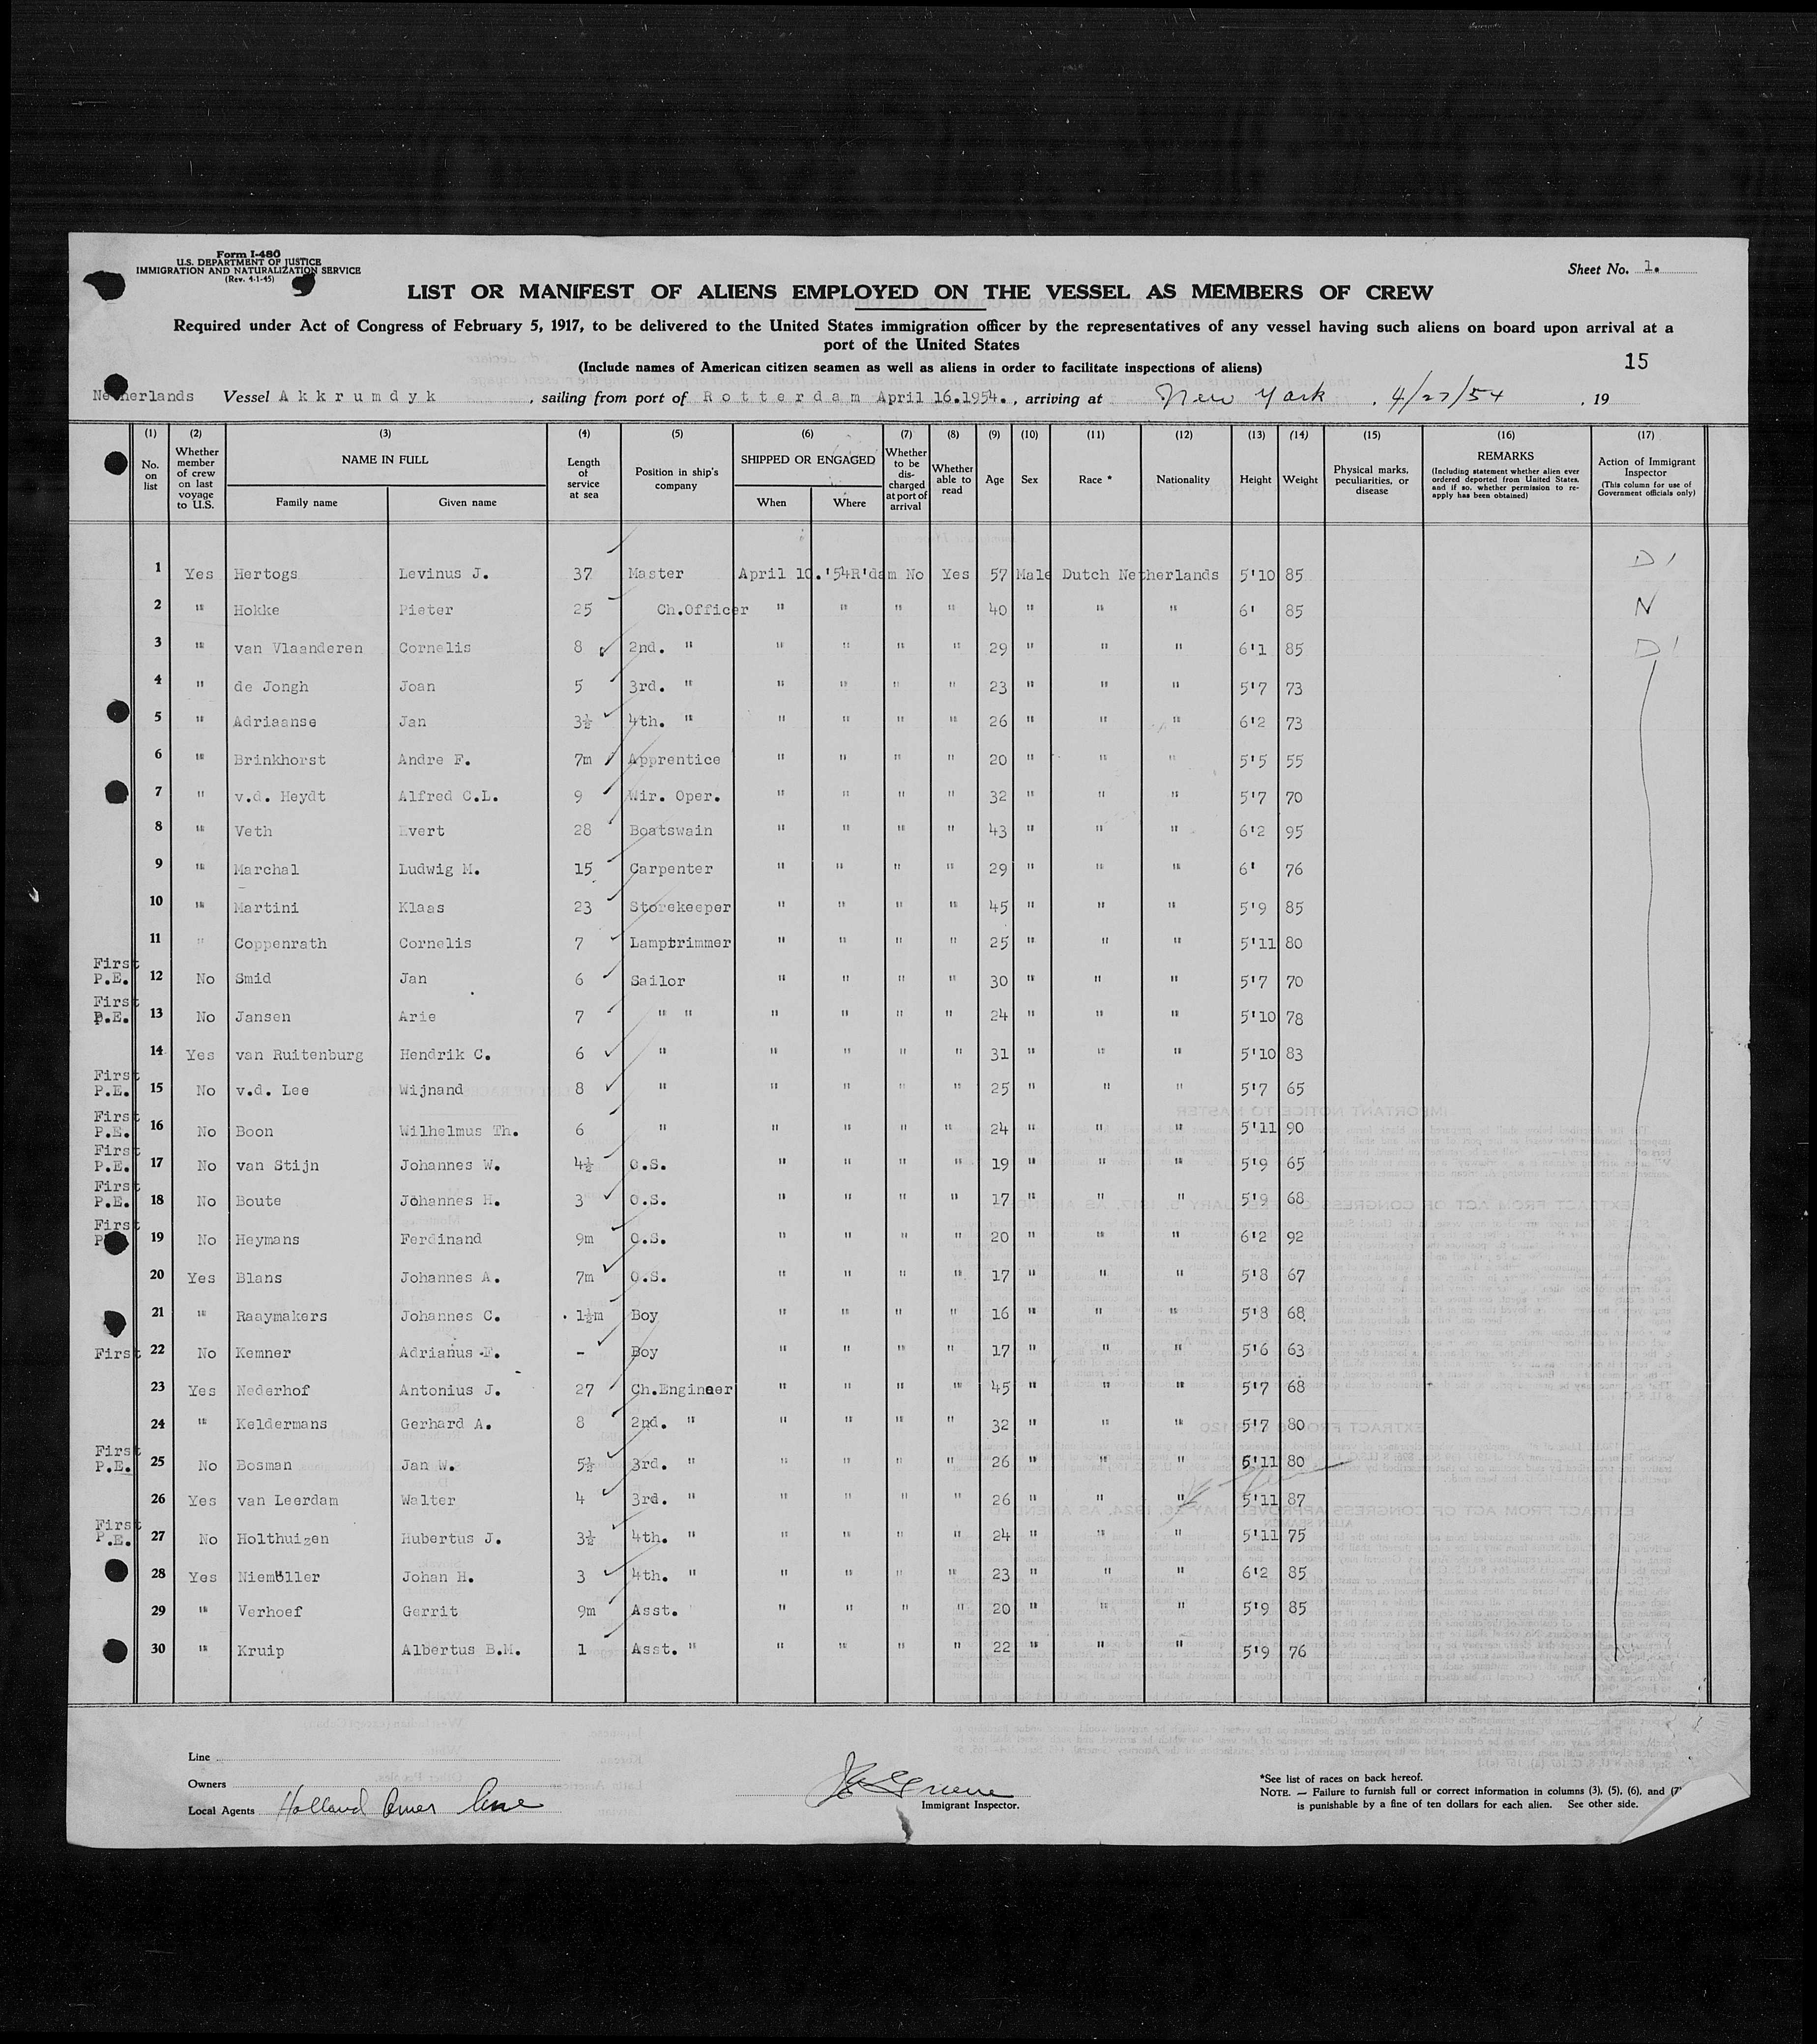 Form I-480
U.S. DEPARTMENT OF JUSTICE
IMMIGRATION AND NATURALIZATION SERVICE
(Rev. 4-1-45)
Sheet No. 1.
LIST OR MANIFEST OF ALIENS EMPLOYED ON THE VESSEL AS MEMBERS OF CREW
Required under Act of Congress of February 5, 1917, to be delivered to the United States immigration officer by the representatives of any vessel having such aliens on board upon arrival at a
port of the United States
(Include names of American citizen seamen as well as aliens in order to facilitate inspections of aliens)
15
Netherlands Vessel Akkrumdyk, sailing from port of Rotterdam April 16.1954., arriving at New York, 4/27/54, 19
(1) No. on list (2) Whether member of crew on last voyage to U.S. (3) NAME IN FULL Family name Given name (4) Length of service at sea (5) Position in ship's company (6) SHIPPED OR ENGAGED When Where (7) Whether to be discharged at port of arrival (8) Whether able to read (9) Age (10) Sex (11) Race * (12) Nationality (13) Height (14) Weight (15) Physical marks, peculiarities, or disease (16) REMARKS (Including statement whether alien ever ordered deported from United States, and if so, whether permission to re-apply has been obtained) (17) Action of Immigrant Inspector (This column for use of Government officials only)
1 Yes Hertogs Levinus J. 37 Master April 10.'54 R'dam No Yes 57 Male Dutch Netherlands 5'10 85 D1
2 " Hokke Pieter 25 Ch.Officer " " " " 40 " " " 6' 85 N
3 " van Vlaanderen Cornelis 8 2nd. " " " " " 29 " " " 6'1 85 D1
4 " de Jongh Joan 5 3rd. " " " " " 23 " " " 5'7 73
5 " Adriaanse Jan 3½ 4th. " " " " " 26 " " " 6'2 73
6 " Brinkhorst Andre F. 7m Apprentice " " " " 20 " " " 5'5 55
7 " v.d. Heydt Alfred C.L. 9 Wir. Oper. " " " " 32 " " " 5'7 70
8 " Veth Evert 28 Boatswain " " " " 43 " " " 6'2 95
9 " Marchal Ludwig M. 15 Carpenter " " " " 29 " " " 6' 76
10 " Martini Klaas 23 Storekeeper " " " " 45 " " " 5'9 85
11 " Coppenrath Cornelis 7 Lamptrimmer " " " " 25 " " " 5'11 80
First P.E. 12 No Smid Jan 6 Sailor " " " " 30 " " " 5'7 70
First P.E. 13 No Jansen Arie 7 " " " " " " 24 " " " 5'10 78
14 Yes van Ruitenburg Hendrik C. 6 " " " " " 31 " " " 5'10 83
First P.E. 15 No v.d. Lee Wijnand 8 " " " " " 25 " " " 5'7 65
First P.E. 16 No Boon Wilhelmus Th. 6 " " " " " 24 " " " 5'11 90
First P.E. 17 No van Stijn Johannes W. 4½ O.S. " " " " 19 " " " 5'9 65
First P.E. 18 No Boute Johannes H. 3 O.S. " " " " 17 " " " 5'9 68
First 19 No Heymans Ferdinand 9m O.S. " " " " 20 " " " 6'2 92
20 Yes Blans Johannes A. 7m O.S. " " " " 17 " " " 5'8 67
21 " Raaymakers Johannes C. 1½m Boy " " " " 16 " " " 5'8 68
First 22 No Kemner Adrianus F. - Boy " " " " 17 " " " 5'6 63
23 Yes Nederhof Antonius J. 27 Ch.Engineer " " " " 45 " " " 5'7 68
24 " Keldermans Gerhard A. 8 2nd. " " " " " 32 " " " 5'7 80
First P.E. 25 No Bosman Jan W. 5½ 3rd. " " " " " 26 " " " 5'11 80
26 Yes van Leerdam Walter 4 3rd. " " " " " 26 " " " 5'11 87
First P.E. 27 No Holthuizen Hubertus J. 3½ 4th. " " " " " 24 " " " 5'11 75
28 Yes Niemöller Johan H. 3 4th. " " " " " 23 " " " 6'2 85
29 " Verhoef Gerrit 9m Asst. " " " " 20 " " " 5'9 85
30 " Kruip Albertus B.M. 1 Asst. " " " " " 22 " " " 5'9 76
Line
Owners
Local Agents Holland Amer Line
Immigrant Inspector.
*See list of races on back hereof.
NOTE. — Failure to furnish full or correct information in columns (3), (5), (6), and (7)
is punishable by a fine of ten dollars for each alien. See other side.